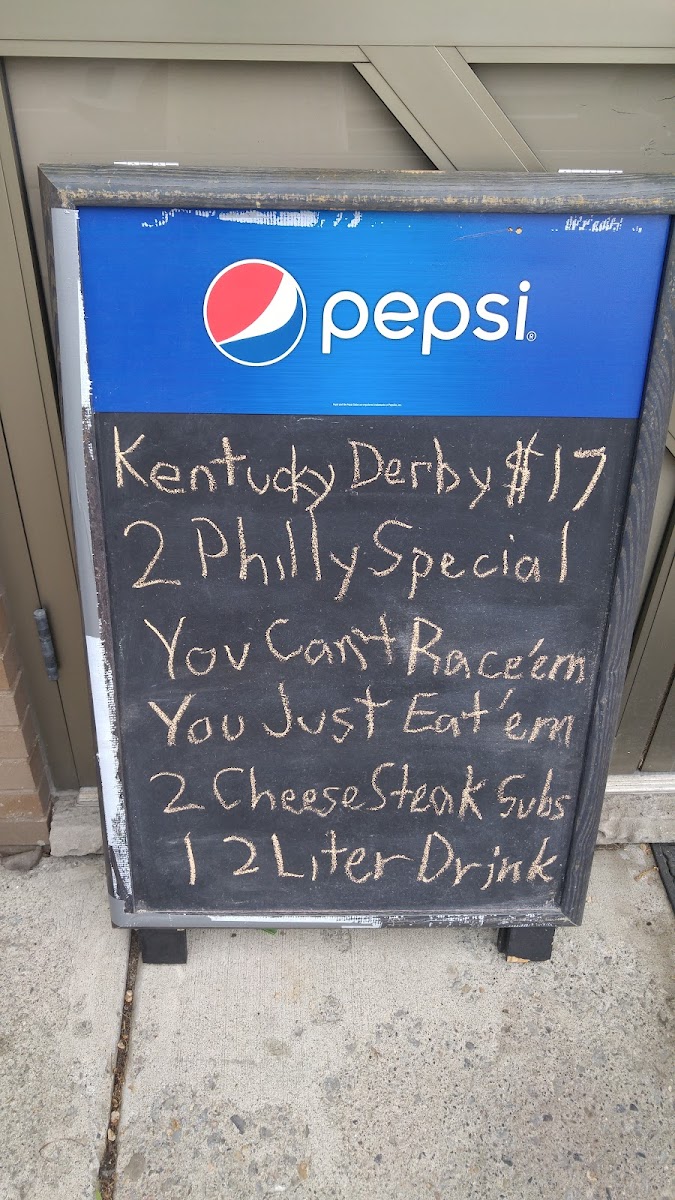 pepsi®
Kentucky Derby $17
2 Philly Special
You Can't Race'em
You Just Eat'em
2 CheeseSteak Subs
1 2 Liter Drink